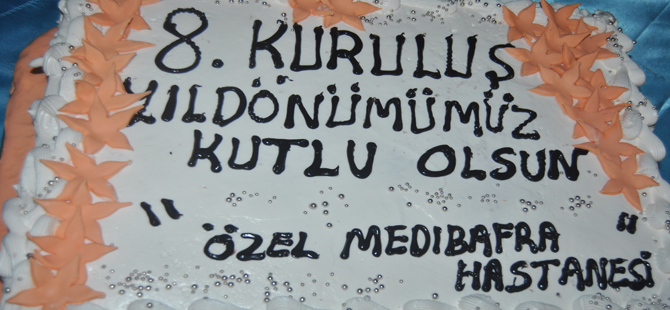 8. KURULUŞ
YILDÖNÜMÜMÜZ
KUTLU OLSUN
" ÖZEL MEDIBAFRA "
HASTANESİ